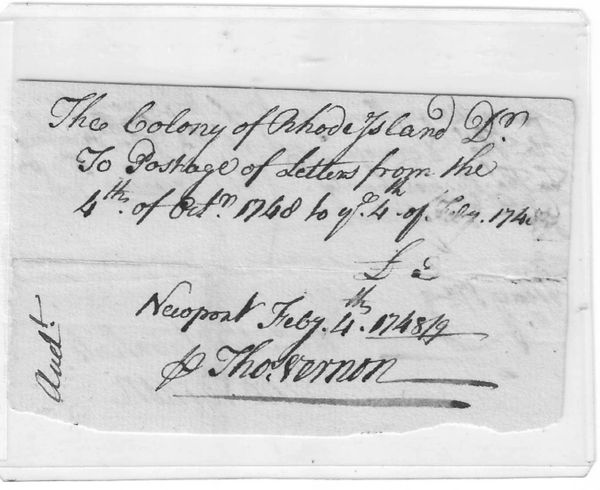 The Colony of Rhode Island Dr
To Postage of Letters from the
4th. of Octr. 1748 to ye. 4th of Feby. 174
£
Newport Feby. 4th 1748/9
⅌ Tho: Vernon
Audt.